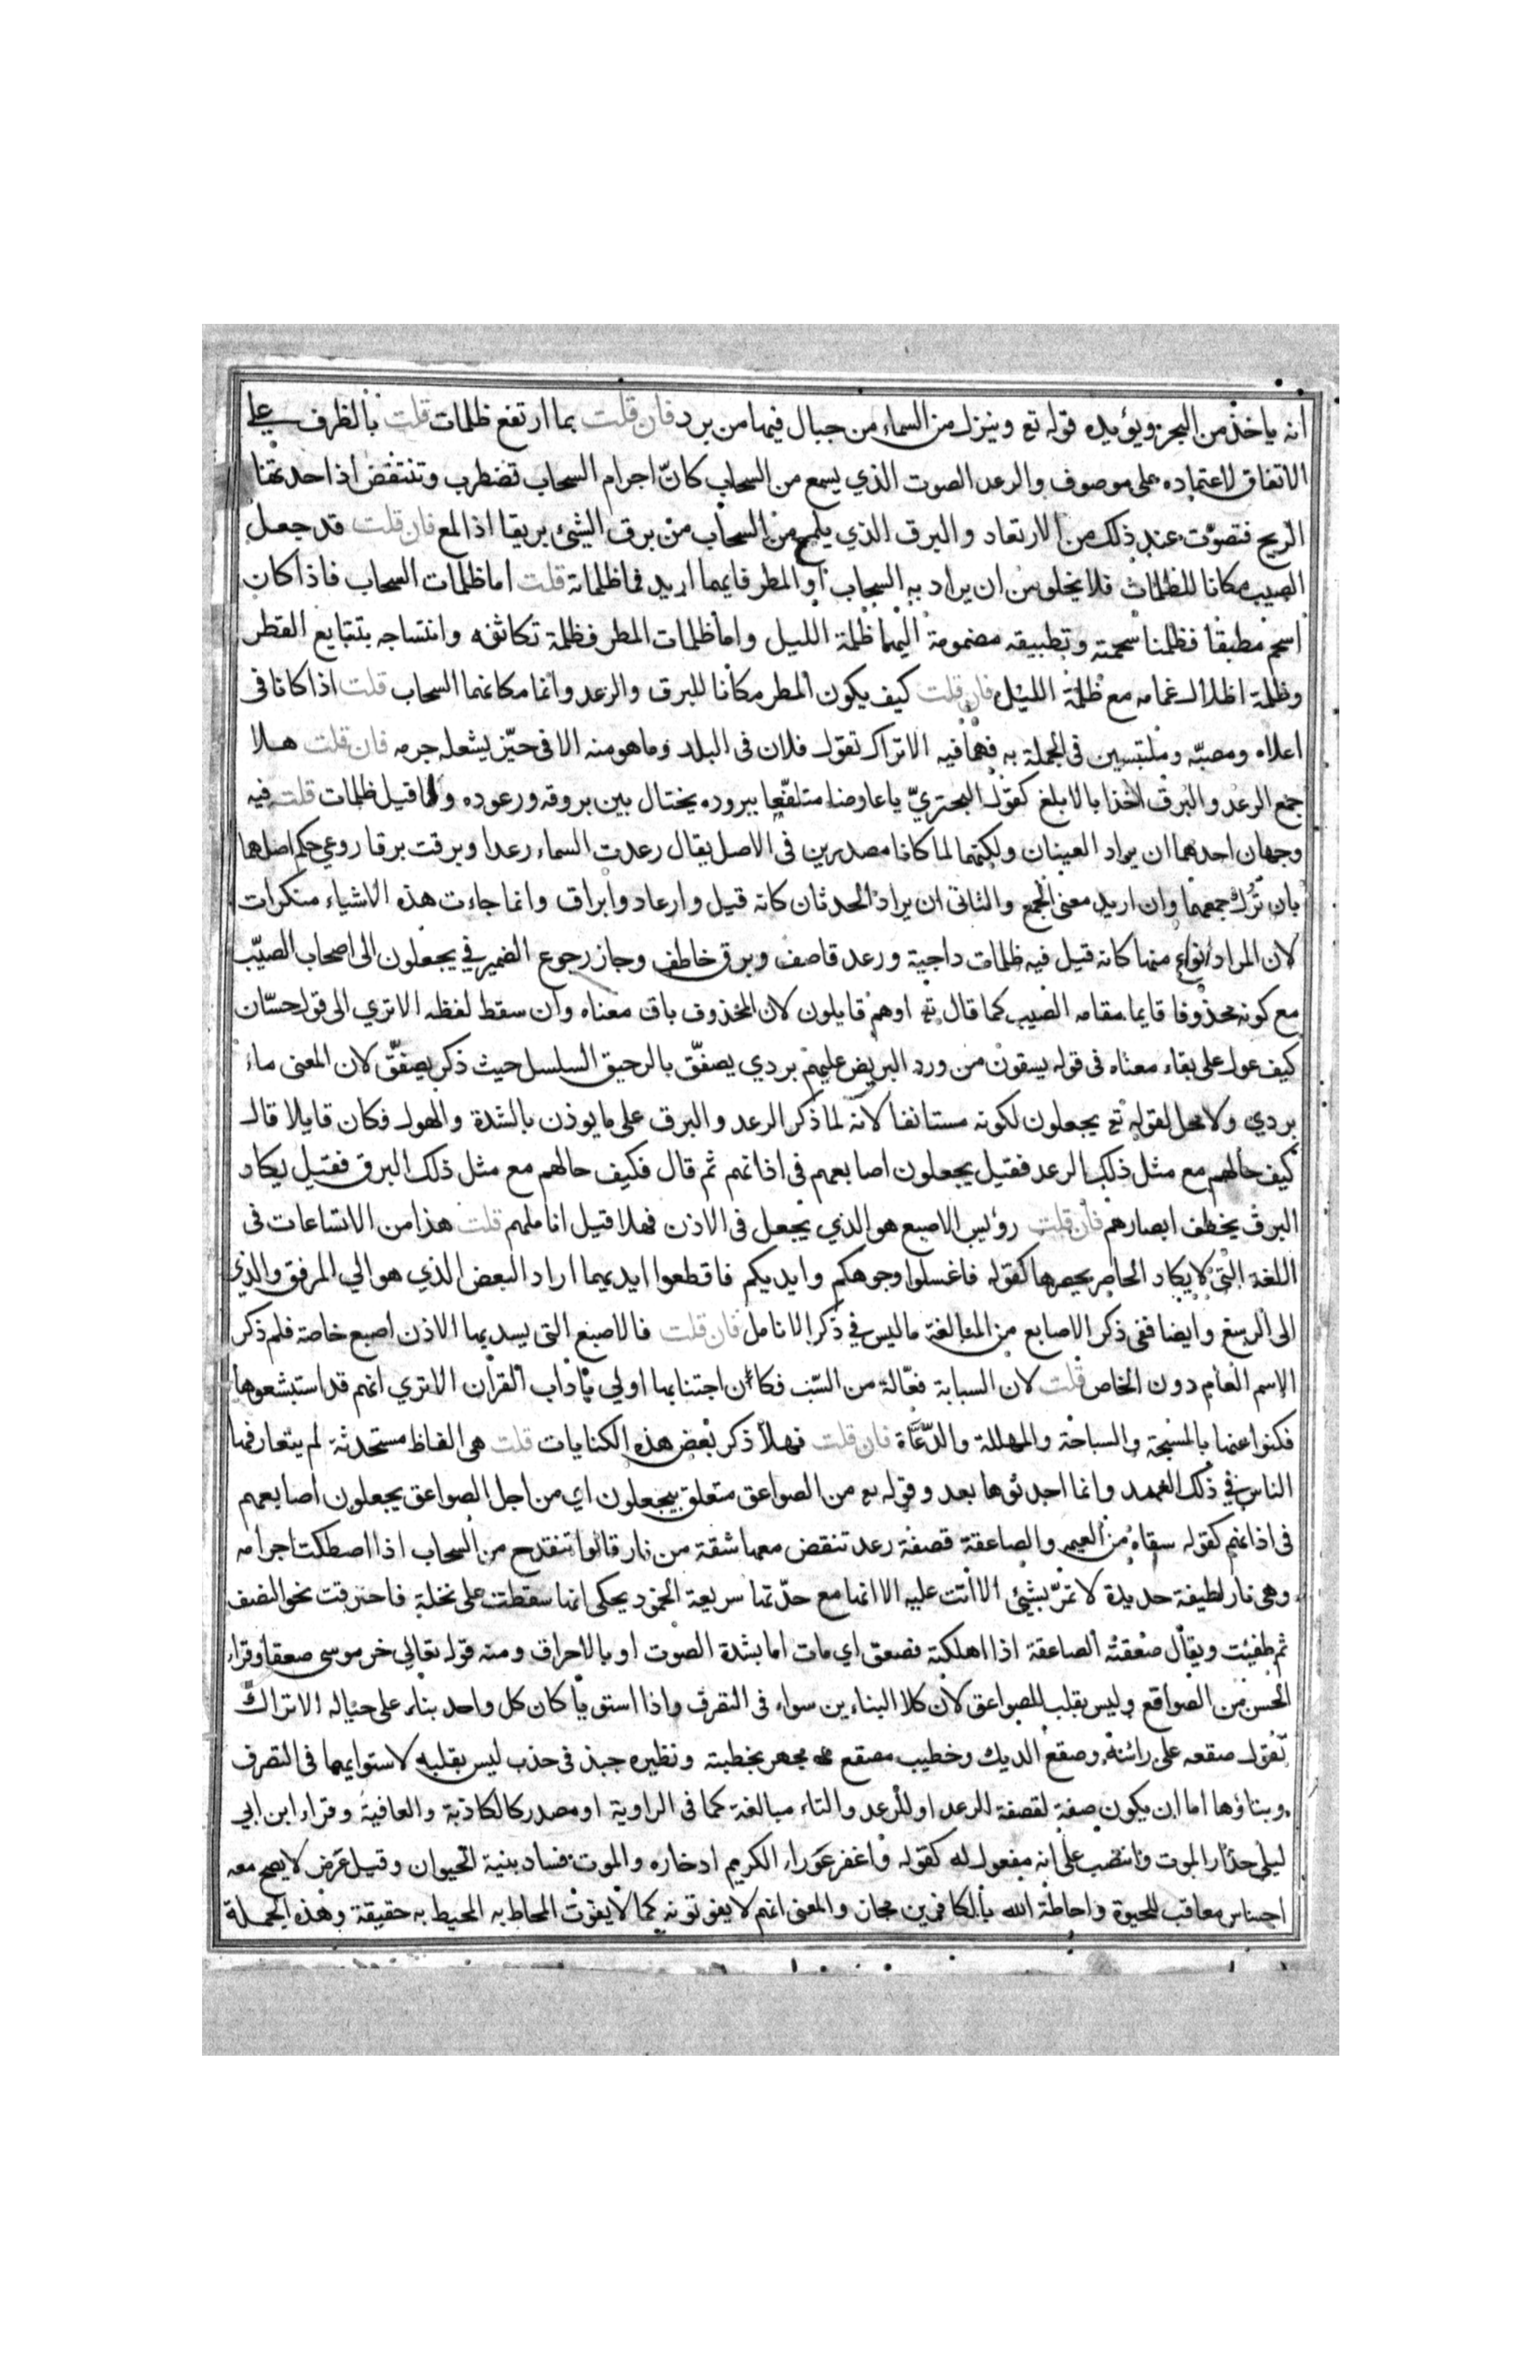 انه ياخذ من البحر ويؤيده قوله تع وينزل من السماء من جبال فيها من برد فان قلت بما ارتفع ظلمات قلت بالظرف على
الاتفاق لاعتماده على موصوف والرعد الصوت الذي يسمع من السحاب كانّ اجرام السحاب تضطرب وتنتفض اذا حدتها
الريح فتصوّت عند ذلك من الارتعاد والبرق الذي يلمع من السحاب من برق الشئ بريقا اذا لمع فان قلت قد جعل
الصيب مكانا للظلمات فلا يخلو من ان يراد به السحاب او المطر فايهما اريد فما ظلماته قلت اما ظلمات السحاب فاذا كان
اسحم مطبقا فظلمتا سحمته وتطبيقه مضمومة اليهما ظلمة الليل واما ظلمات المطر فظلمة تكاثفه وانتساجه بتتابع القطر
وظلمة اظلال غمامه مع ظلمة الليل فان قلت كيف يكون المطر مكانا للبرق والرعد وانما مكانهما السحاب قلت اذا كانا فى
اعلاه ومصبّه وملتبسين فى الجملة به فهما فيه الاتراك تقول فلان فى البلد وما هو منه الا فى حيّز يشغله جرمه فان قلت هلا
جمع الرعد والبرق اخذا بالابلغ كقول البحتريّ يا عارضا متلفّعا ببروده يختال بين بروقه ورعوده وكما قيل ظلمات قلت فيه
وجهان احدهما ان يراد العينان ولكنهما لما كانا مصدرين فى الاصل يقال رعدت السماء رعدا وبرقت برقا روعي حكم اصلهما
بان تُرك جمعهما وان اريد معنى الجمع والثانى ان يراد الحدثان كانه قيل وارعاد وابراق وانما جاءت هذه الاشياء منكرات
لان المراد انواع منها كانه قيل فيه ظلمات داجية ورعد قاصف وبرق خاطف وجاز رجوع الضمير في يجعلون الى اصحاب الصيّب
مع كونه محذوفا قايما مقامه الصيب كما قال تع او هم قايلون لان المحذوف باق معناه وان سقط لفظه الا تري الى قول حسّان
كيف عول على بقاء معناه فى قوله يسقون من ورد البريص عليهم بردي يصفّق بالرحيق السلسل حيث ذكر يصفّق لان المعنى ماء
بردي ولا محل لقوله تع يجعلون لكونه مستانفا لانه لما ذكر الرعد والبرق على ما يوذن بالشدة والهول فكان قايلا قال
كيف حالهم مع مثل ذلك الرعد فقيل يجعلون اصابعهم فى اذانهم ثم قال فكيف حالهم مع مثل ذلك البرق فقيل يكاد
البرق يخطف ابصارهم فان قلت رؤيس الاصبع هو الذي يجعل فى الاذن فهلا قيل اناملهم قلت هذا من الاتساعات فى
اللغة التى لا يكاد الحاصر يحصرها كقوله فاغسلوا وجوهكم وايديكم فاقطعوا ايديهما اراد البعض الذي هو الي المرفق والذي
الى الرسغ وايضا ففى ذكر الاصابع من المبالغة ما ليس في ذكر الانامل فان قلت فالاصبع التى يسد بها الاذن اصبع خاصة فلم ذكر
الاسم العام دون الخاص قلت لان السبابة فعّالة من السّب فكان اجتنابها اولي بآداب القرآن الا تري انهم قد استبشعوها
فكنوا عنها بالمسبحة والسباحة والمهللة والدّعّاة فان قلت فهلا ذكر بعض هذه الكنايات قلت هى الفاظ مستحدثة لم يتعارفها
الناس في ذلك العهد وانما احدثوها بعد وقوله تع من الصواعق متعلق بيجعلون اي من اجل الصواعق يجعلون اصابعهم
فى اذانهم كقوله سقاه من العيمه والصاعقة قصفة رعد تنقض معها شقة من نار قالوا تنقدح من السحاب اذا اصطكت اجرامه
وهى نار لطيفة حديدة لا تمرّ بشيئ الا اتت عليه الا انها مع حدّتها سريعة الخمود يحكى انها سقطت على نخلة فاحترقت نحو النصف
ثم طفيت ويقال صعقته الصاعقة اذا اهلكته فصعق اي مات اما بشدة الصوت او بالاحراق ومنه قوله تعالي خر موسى صعقا وقراء
الحسن من الصواقع وليس بقلب للصواعق لان كلا البناءين سواء فى التصرف واذا استويا كان كل واحد بناء على حياله الا تراك
تقول صقعه على راسه وصقع الديك وخطيب مصقع مجهر بخطبته ونظيره جبذ فى جذب ليس بقلبه لاستوايهما فى التصرف
وبناؤها اما ان يكون صفة لقصفة الرعد او للرعد والتاء مبالغة كما فى الراوية او مصدر كالكاذبة والعافية وقراء ابن ابي
ليلى حذار الموت وانتصب على انه مفعول له كقوله واغفر عوراء الكريم ادخاره والموت فساد بنية الحيوان وقيل عرض لا يصح معه
احساس معاقب للحيوة واحاطة الله بالكافرين مجاز والمعنى انهم لا يفوتونه كما لا يفوت المحاط به المحيط به حقيقة وهذه الجملة